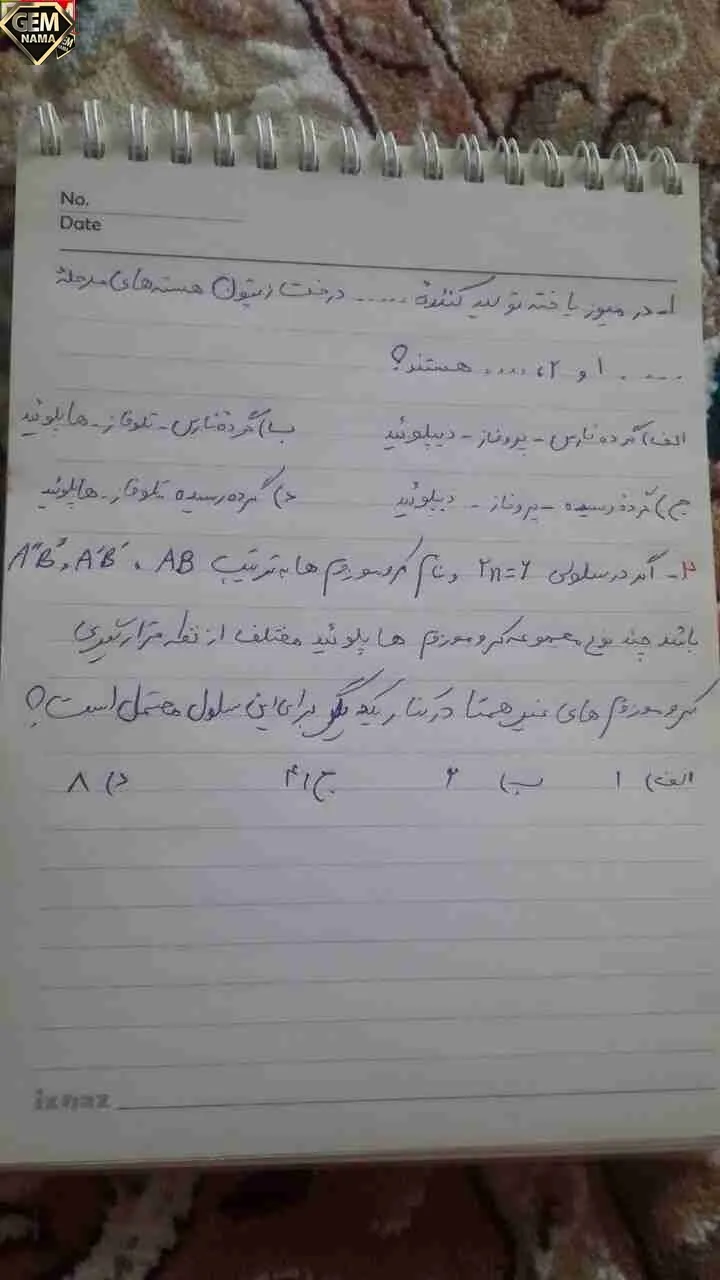 GEM
NAMA
No.
Date
۱- در میوز یاخته تولید کنندهٔ ..... درخت زیتون هسته‌های مرحلهٔ
..... ۱ و ۲، ..... هستند؟
الف) گرده نارس - پروفاز - دیپلوئید ب) گردهٔ نارس - تلوفاز - هاپلوئید
ج) گردهٔ رسیده - پروفاز - دیپلوئید د) گرده رسیده - تلوفاز - هاپلوئید
۲- اگر در سلولی 2n=6 و نام کروموزوم ها به ترتیب AB ، A'B' و A"B"
باشد چند نوع مجموعه کروموزوم هاپلوئید مختلف از نظر قرارگیری
کروموزوم های غیر همتا در کنار یکدیگر برای این سلول محتمل است؟
الف) ۱ ب) ۲ ج) ۴ د) ۸